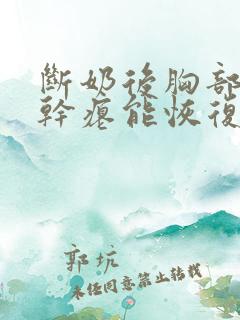 斷奶後胸部
幹癟能恢復
郭坑
未經同意禁止轉載